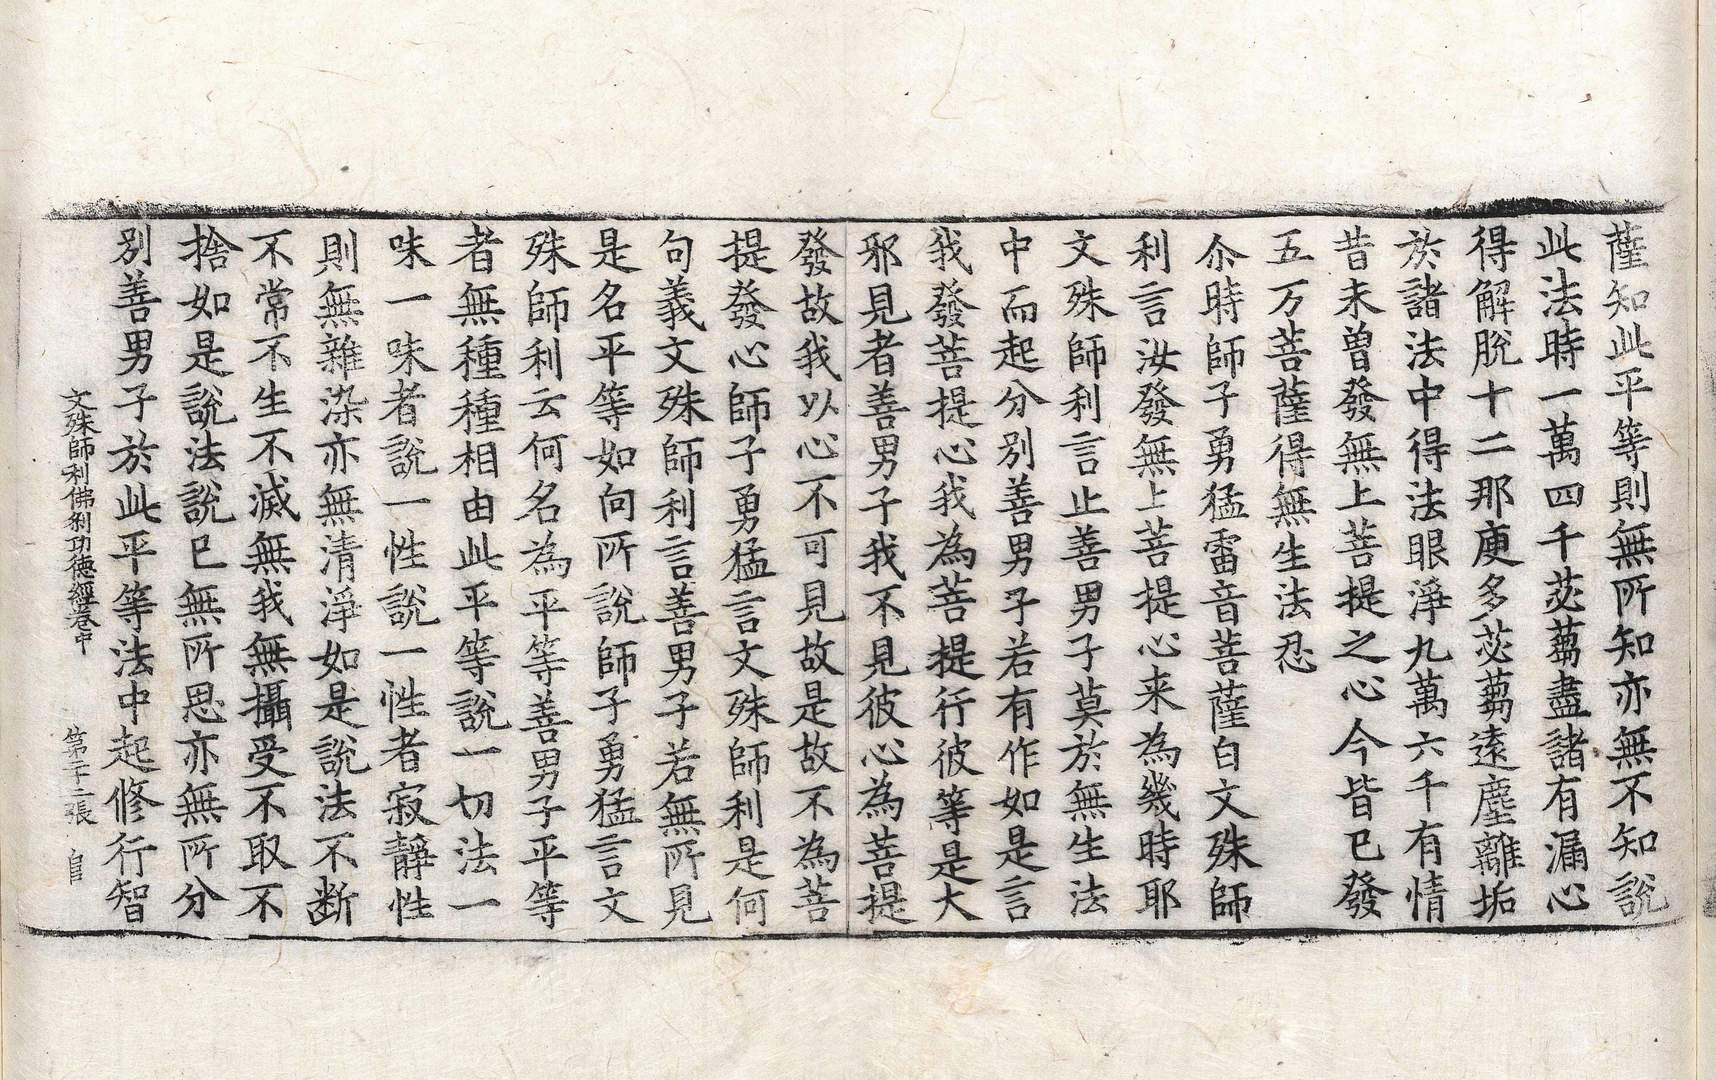 薩知此平等則無所知亦無不知說
此法時一萬四千苾蒭盡諸有漏心
得解脫十二那庾多苾蒭遠塵離垢
於諸法中得法眼淨九萬六千有情
昔未曾發無上菩提之心今皆已發
五万菩薩得無生法忍
尒時師子勇猛雷音菩薩白文殊師
利言汝發無上菩提心来為幾時耶
文殊師利言止善男子莫於無生法
中而起分別善男子若有作如是言
我發菩提心我為菩提行彼等是大
邪見者善男子我不見彼心為菩提
發故我以心不可見故是故不為菩
提發心師子勇猛言文殊師利是何
句義文殊師利言善男子若無所見
是名平等如向所說師子勇猛言文
殊師利云何名為平等善男子平等
者無種種相由此平等說一切法一
味一味者說一性說一性者寂靜性
則無雜染亦無清淨如是說法不断
不常不生不滅無我無攝受不取不
捨如是說法說已無所思亦無所分
別善男子於此平等法中起修行智
文殊師利佛刹功德經卷中 第二十二張 自